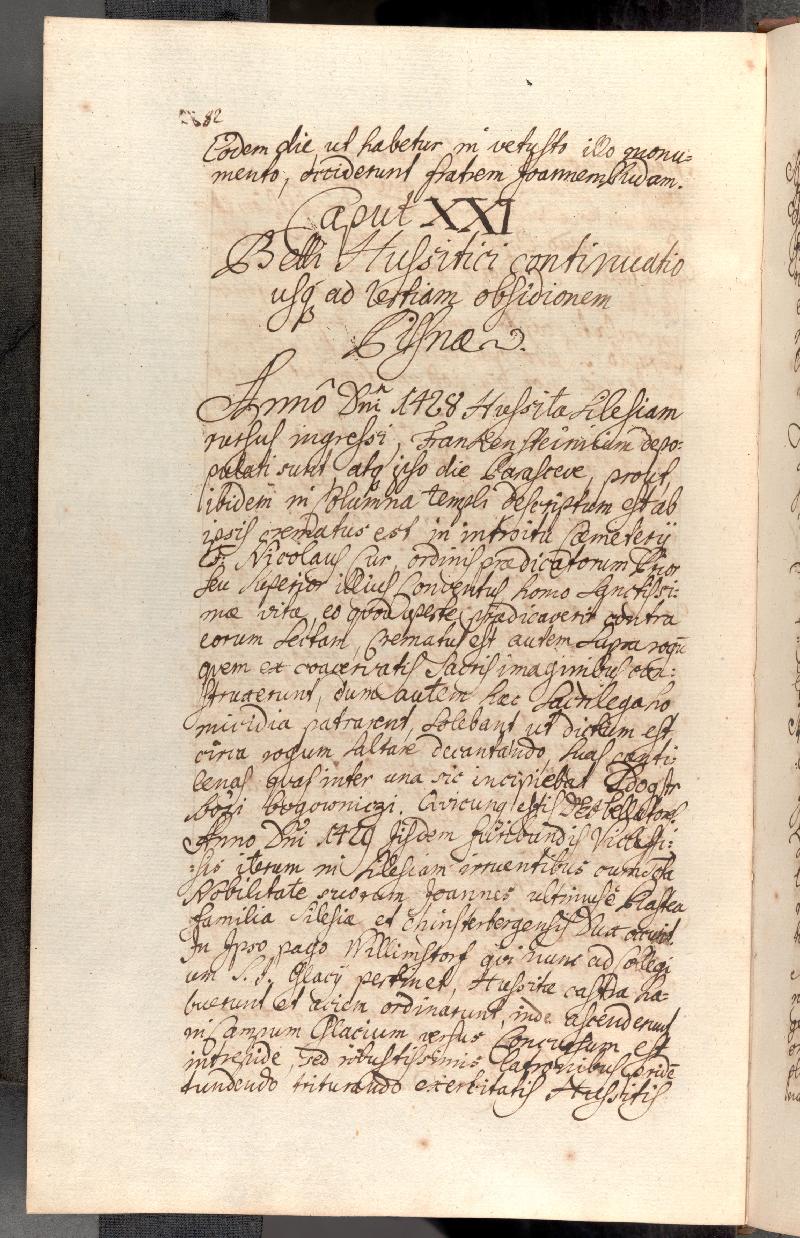 82
Eodem die ut habetur in vetusto illo monu=
mento, occiderunt fratrem Joannem Budam.
Caput XXI
Belli Hussitici continuatio
usq ad tertiam obsidionem
Pilsnæ.
Annô Dni 1428 Hussitæ Silesiam
rursus ingressi, Frankensteinium depo=
pulati sunt, atq ipso die Parasceve, prout,
ibidem in Columna templi descriptum est ab
ipsis crematus est in introitu Cæmeterij
Nicolaus Cur, ordinis prædicatorum Prior
seu Superior illius Conventus homo Sanctissi=
mæ vitæ, eo quod aperte prædicaverit contra
eorum Sectam, Crematus est autem supra rogũ
quem ex coacervatis Sacris imaginibus con=
struxerunt, dum autem hæc Sacrilega ho
micidia patrarent, solebant ut dictum est
circa rogum saltare decantando suas canti
lenas quas inter una sic incipiebat
bozi bogowniczi. Quicunq estis DEI bellatores.
Anno Dni 1429 Jisdem furibundis Vicissi=
=sis iterum in Silesiam irruentibus cum
Nobilitate suorum Joannes ultimus è Piastea
familia Silesiæ et Minsterbergensis Dux
In Ipso pago Willimstorf qui nunc ad Collegi
um S.J. Glacij pertinet, Hussitæ castra ha=
buerunt et aciem ordinarunt, inde ascenderunt
in Campum Glacium versus Concursum est
intrepide, sed robustissimis latronibus
tundendo triturando exercitatis Hussitis